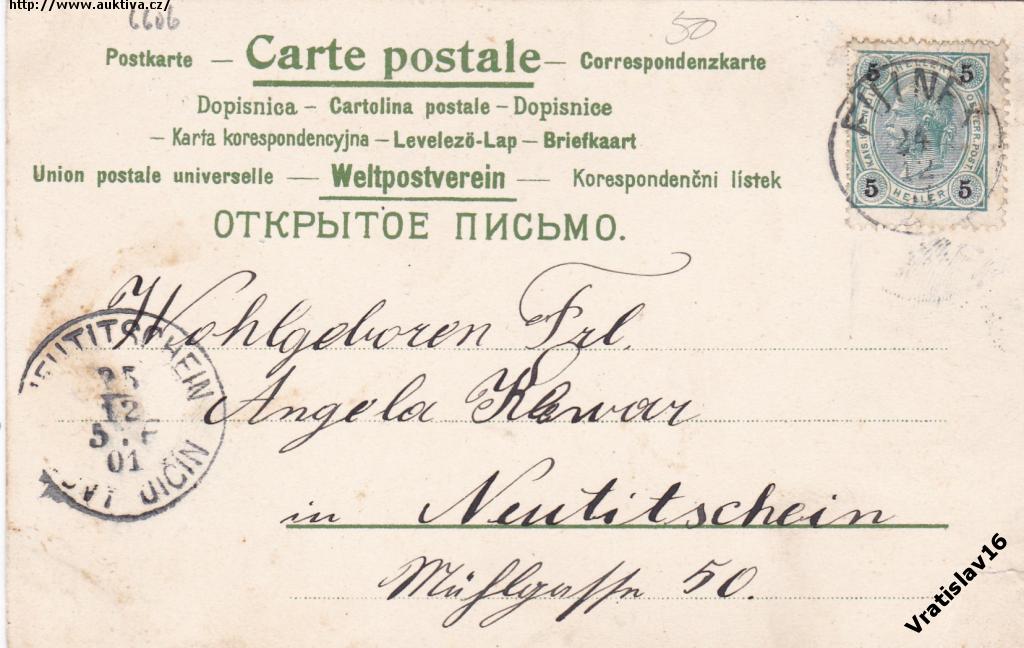 http://www.auktiva.cz/
6606
50
Postkarte — Carte postale — Correspondenzkarte
Dopisnica — Cartolina postale — Dopisnice
— Karta korespondencyjna — Levelezö-Lap — Briefkaart
Union postale universelle — Weltpostverein — Korespondenčni lístek
ОТКРЫТОЕ ПИСЬМО.
5 5
5 5
HELLER
24
12
Wohlgeboren Frl.
Angela
in Neutitschein
Mühlgasse 50.
NEUTITSCHEIN
25
12
5
01
JIČIN
Vratislav16